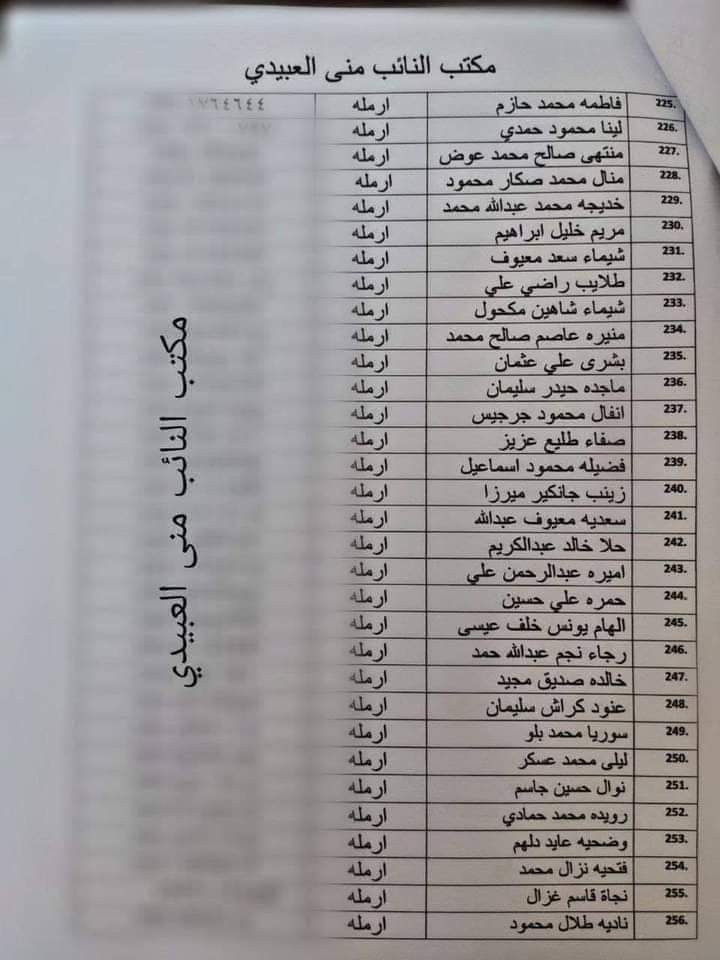 مكتب النائب منى العبيدي
225. فاطمه محمد حازم ارمله ١٧٦٤٦٤٤
226. لينا محمود حمدي ارمله
227. منتهى صالح محمد عوض ارمله
228. منال محمد صكار محمود ارمله
229. خديجه محمد عبدالله محمد ارمله
230. مريم خليل ابراهيم ارمله
231. شيماء سعد معيوف ارمله
232. طلايب راضي علي ارمله
233. شيماء شاهين مكحول ارمله
234. منيره عاصم صالح محمد ارمله
235. بشرى علي عثمان ارمله
236. ماجده حيدر سليمان ارمله
237. انفال محمود جرجيس ارمله
238. صفاء طليع عزيز ارمله
239. فضيله محمود اسماعيل ارمله
240. زينب جانكير ميرزا ارمله
241. سعديه معيوف عبدالله ارمله
242. حلا خالد عبدالكريم ارمله
243. اميره عبدالرحمن علي ارمله
244. حمره علي حسين ارمله
245. الهام يونس خلف عيسى ارمله
246. رجاء نجم عبدالله حمد ارمله
247. خالده صديق مجيد ارمله
248. عنود كراش سليمان ارمله
249. سوريا محمد بلو ارمله
250. ليلى محمد عسكر ارمله
251. نوال حسين جاسم ارمله
252. رويده محمد حمادي ارمله
253. وضحيه عايد دلهم ارمله
254. فتحيه نزال محمد ارمله
255. نجاة قاسم غزال ارمله
256. ناديه طلال محمود ارمله
مكتب النائب منى العبيدي